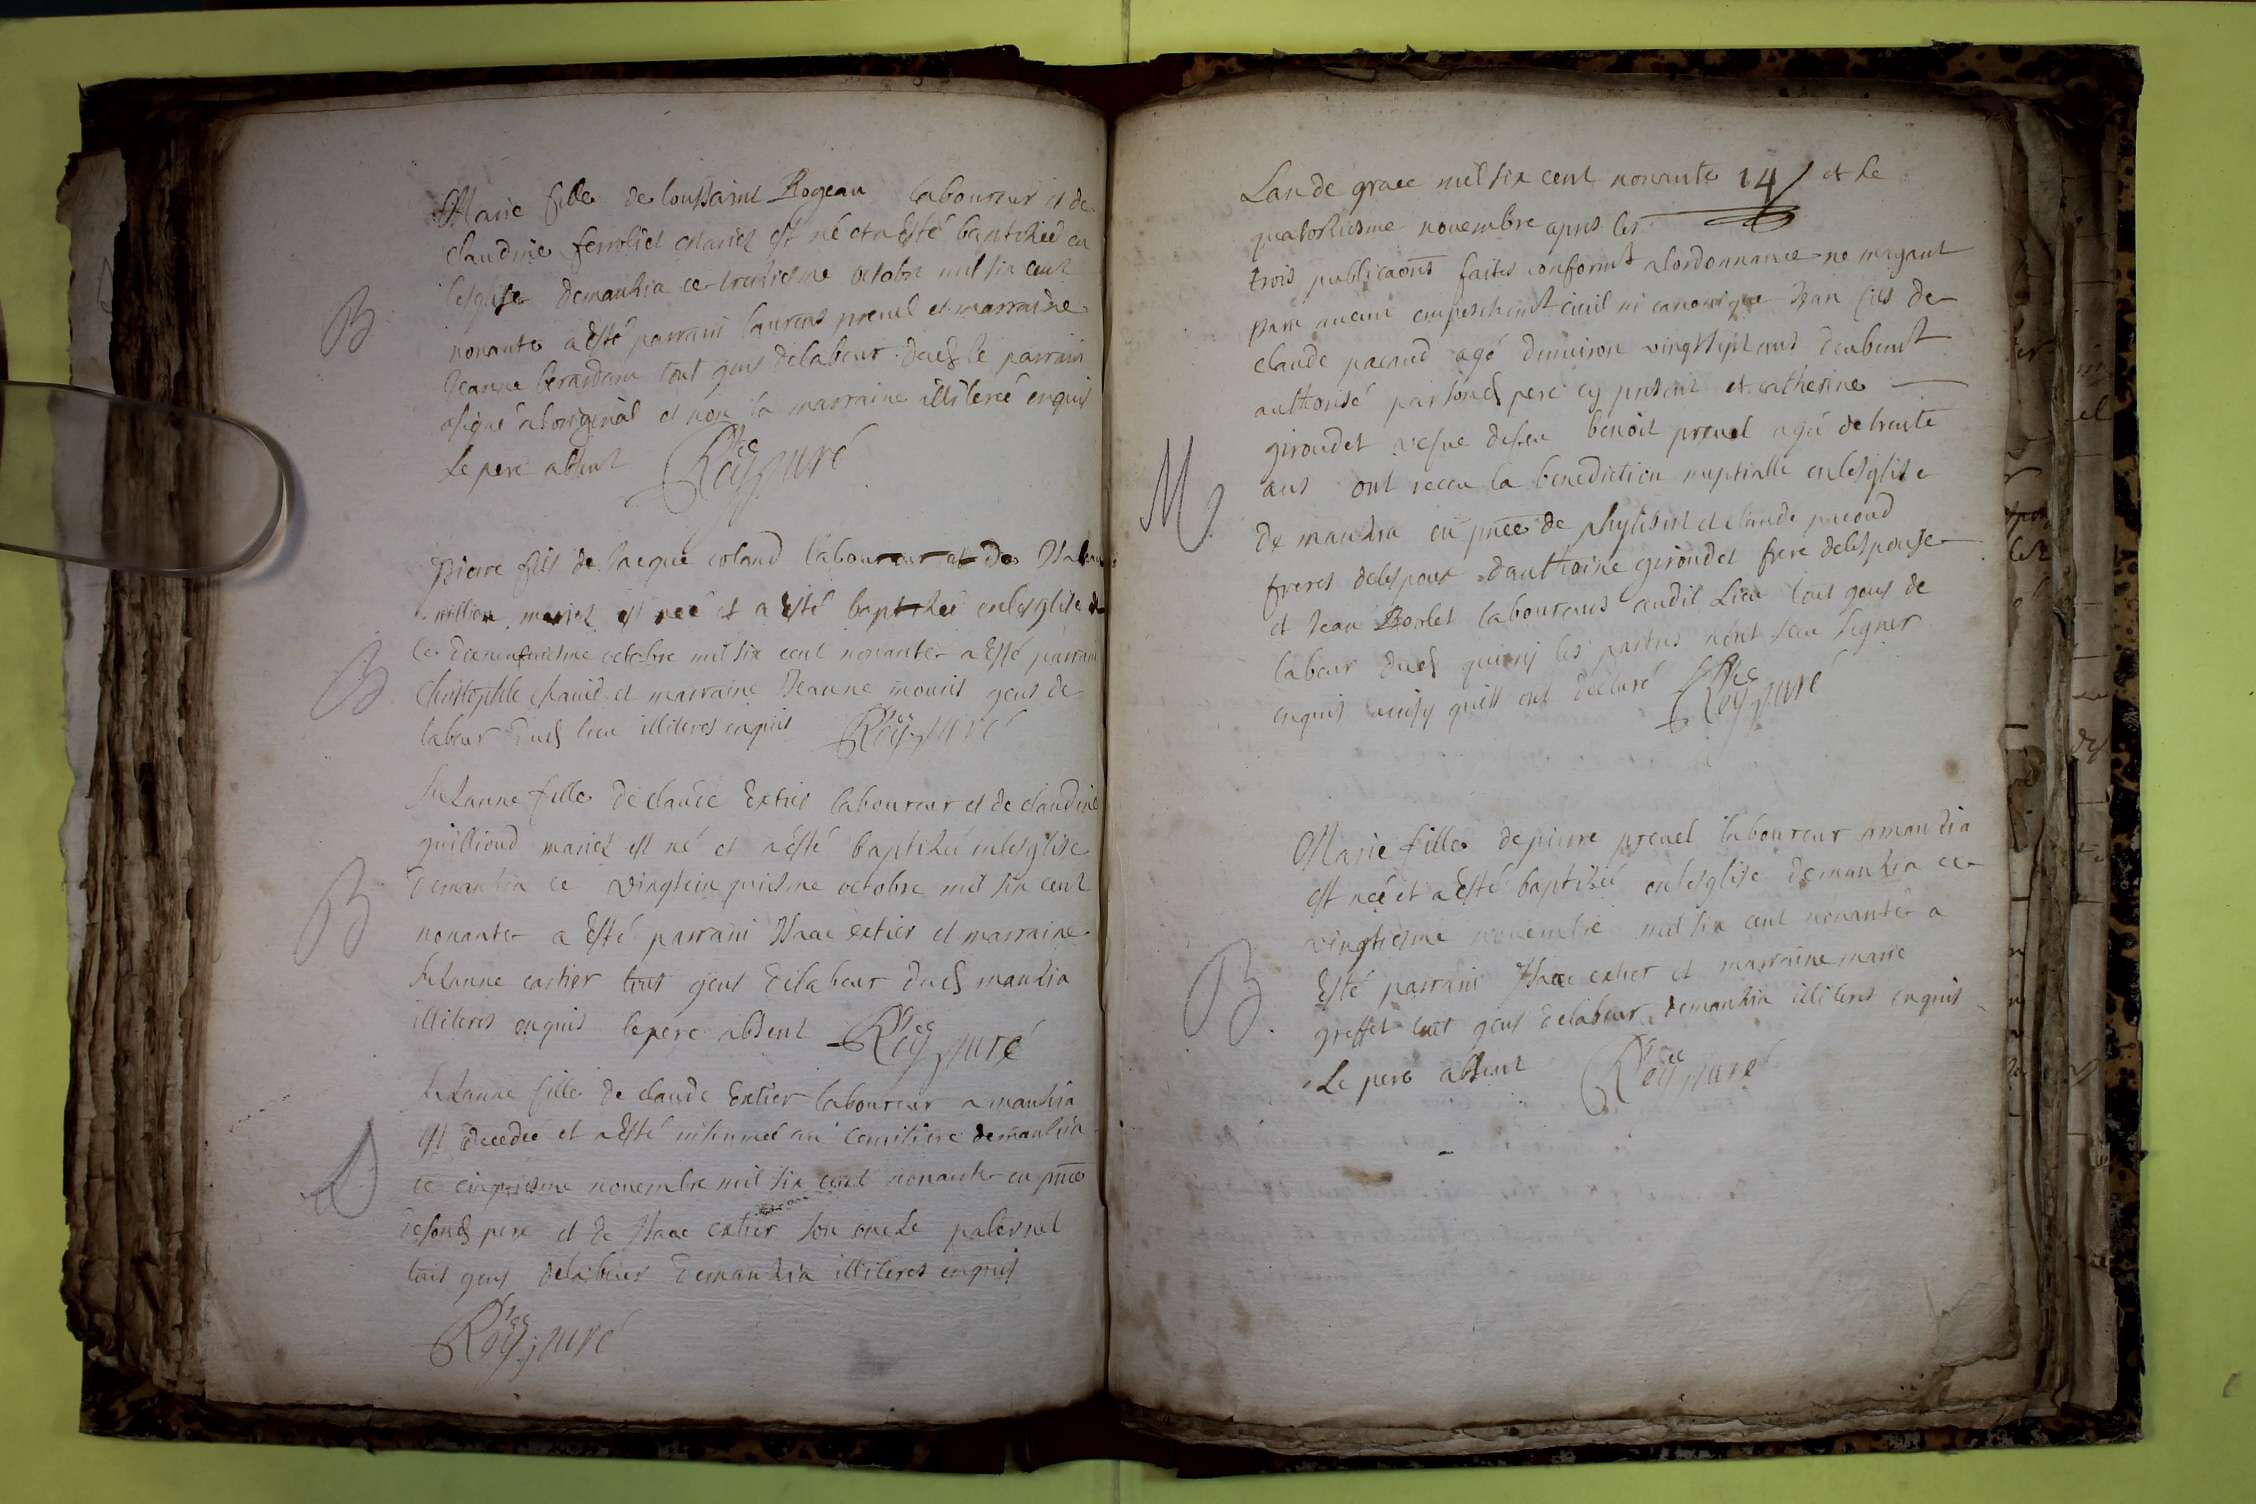 Marie fille de toussaint Rogeau laboureur et de
claudine ferrolliet mariez est né et a Esté baptizée en
lesglise demanzia ce treziesme octobre mil six cent
nonante a Esté parrain laurens prevel et marraine
Jeanne berardam tout gens delabeur dud le parrain
asigné aloriginal et non la marraine illiterée enquis
Le pere absent Roy ptre curé
B
Pierre fils de Jacque coland laboureur et de
million mariez est née et a esté baptizée enlesglise de
ce dixneufviesme octobre mil six cent nonante a Esté parrain
Christophle chavid et marraine Jeanne mouris gens de
labeur dud lieu illiteres enquis Roy ptre curé
B
Suzanne fille de claude Extier laboureur et de claudine
guillioud mariez est né et a esté baptizée enlesglise
demanzia ce vingtcinquiesme octobre mil six cent
nonante a Esté parrain Isaac extier et marraine
Suzanne cartier tous gens delabeur dud manzia
illiteres enquis lepere absent Roy ptre curé
B
Suzanne fille de claude Extier laboureur a manzia
est decedée et a Esté inhumée au cemitiere demanzia
ce cinquiesme novembre mil six cent nonante en pnce
desond pere et de Isaac extier son oncle paternel
tous gens delabeur demanzia illiteres enquis
Roy ptre curé
Lan de grace mil six cent nonante 14 et le
quatorziesme novembre apres les
trois publicaons faites conformt a lordonnance ne mayant
paru aucun empeschemt civil ni canonique Jean fils de
claude pacoud agé denviron vingtsept ans deubemt
authorisé par sond pere cy present et catherine
giroudet vefve defeu benoit prevel agé de trente
ans ont receu la benediction nuptialle enlesglise
de manzia en pnce de phylibert et claude pacoud
freres delespoux dauthoine giroudet frere delespouse
et Jean Borlet laboureurs audit Lieu tout gens de
labeur dud quirij les parties nont sceu signer
enquis ainsy quils ont declaré Roy ptre curé
M
Marie fille depierre prevel laboureur amanzia
est née et a Esté baptizée enlesglise demanzia ce
vingtiesme novembre mil six cent nonante a
Esté parrain Isaac extier et marraine marie
greffet tout gens delabeur demanzia illiteres enquis
Le pere absent Roy ptre curé
B